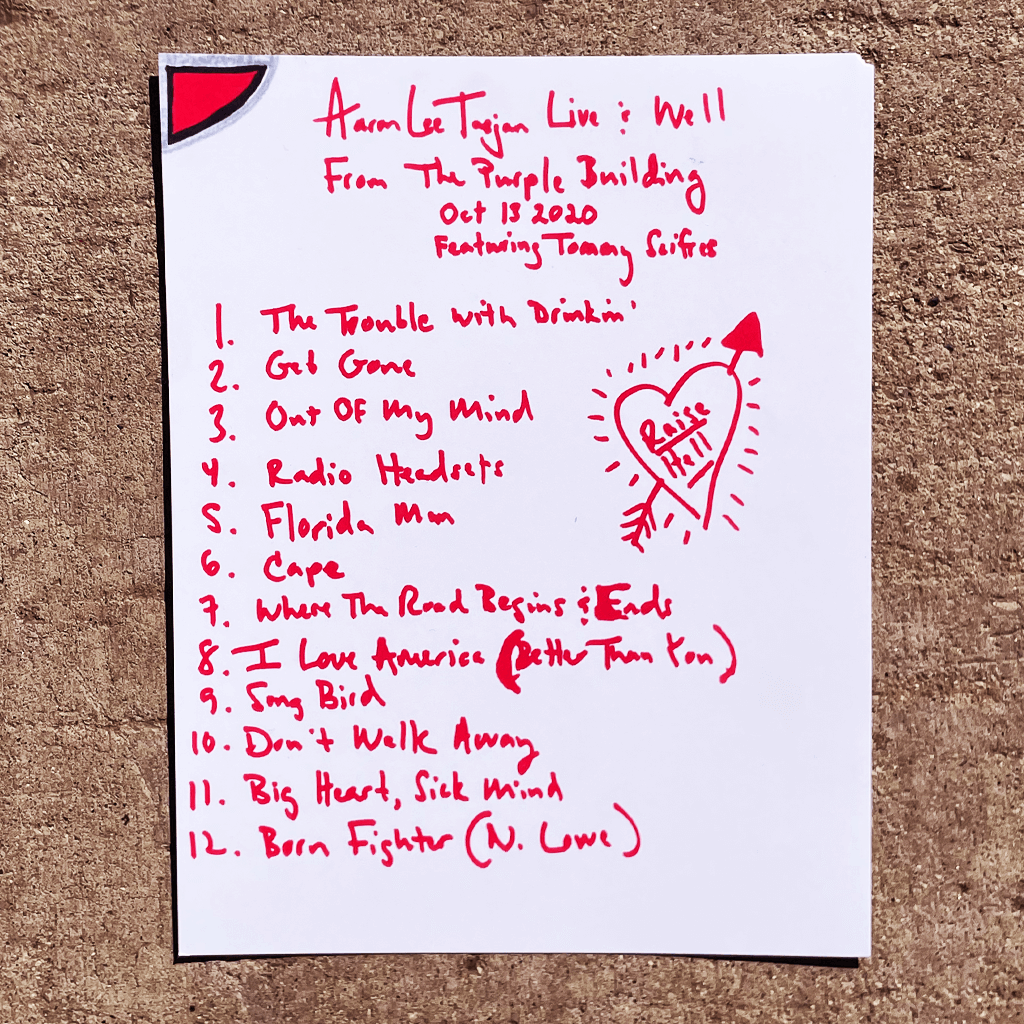 Aaron Lee Tasjan Live & Well
From The Purple Building
Oct 13 2020
Featuring Tommy Scifres
1. The Trouble with Drinkin'
2. Get Gone
3. Out Of My Mind
4. Radio Headsets
5. Florida Man
6. Cape
7. Where The Road Begins & Ends
8. I Love America (Better Than You)
9. Song Bird
10. Don't Walk Away
11. Big Heart, Sick Mind
12. Born Fighter (N. Lowe)
Raise
Hell